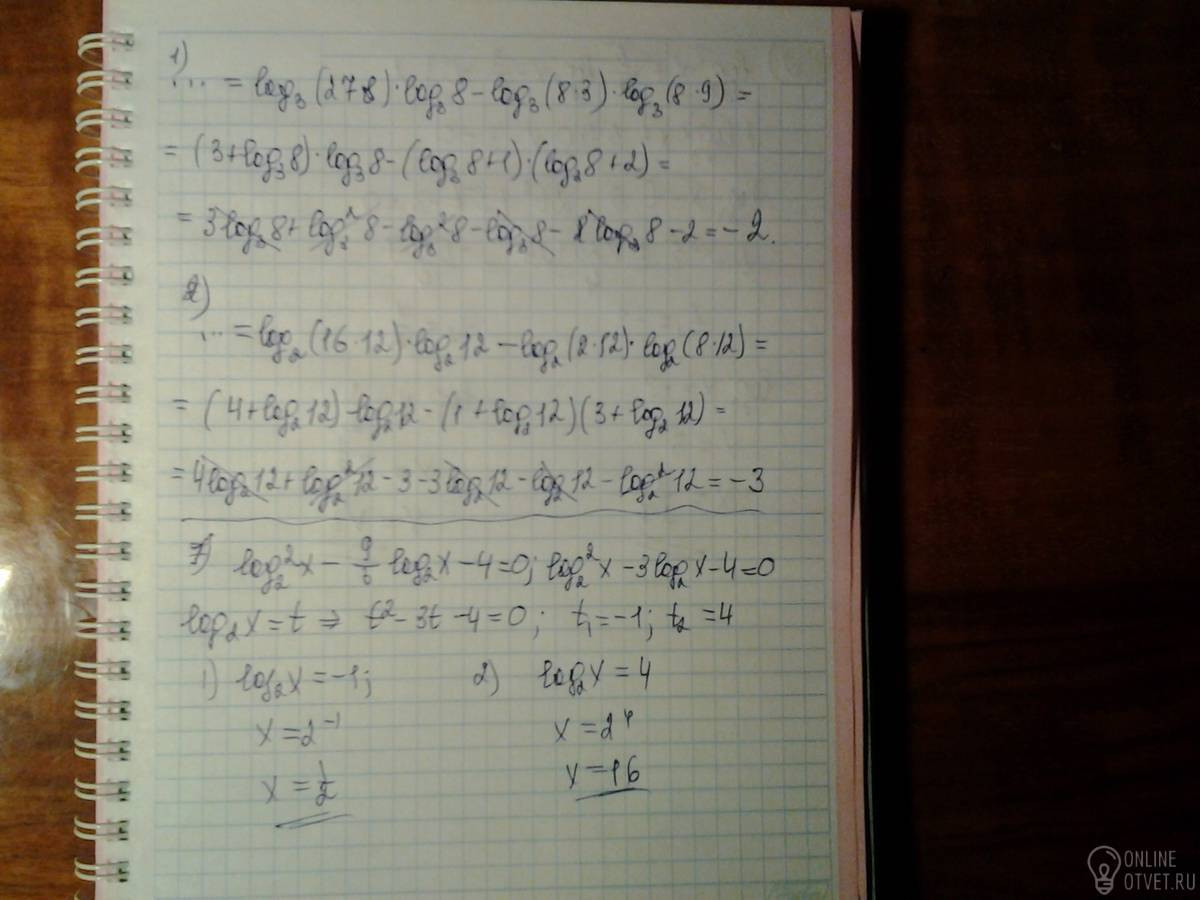 1)
... = log₃(27·8)·log₃8 - log₃(8·3)·log₃(8·9) =
= (3+log₃8)·log₃8 - (log₃8+1)·(log₃8+2) =
= 3log₃8 + log₃²8 - log₃²8 - log₃8 - 2log₃8 - 2 = -2.
2)
... = log₂(16·12)·log₂12 - log₂(2·12)·log₂(8·12) =
= (4+log₂12)·log₂12 - (1+log₂12)(3+log₂12) =
= 4log₂12 + log₂²12 - 3 - 3log₂12 - log₂12 - log₂²12 = -3
7) log₂²x - log₂x - 4 = 0; log₂²x - 3log₂x - 4 = 0
log₂x = t ⇒ t² - 3t - 4 = 0; t₁ = -1; t₂ = 4
1) log₂x = -1; 2) log₂x = 4
x = 2⁻¹ x = 2⁴
x = 1/2 x = 16
ONLINE
OTVET.RU